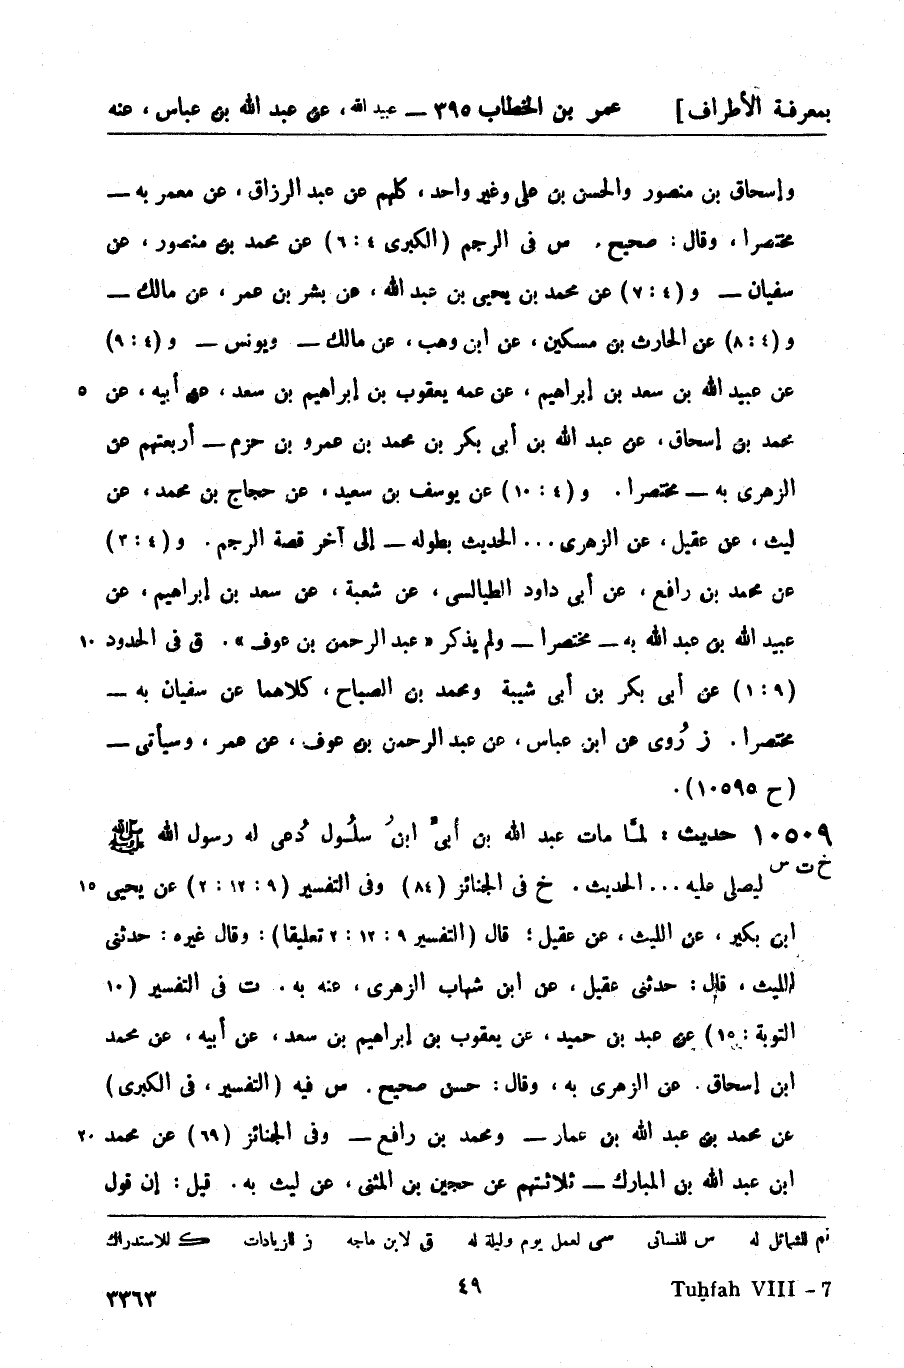 بمعرفة الأطراف] عمر بن الخطاب ٣٩٥ — عبيد الله، عن عبد الله بن عباس، عنه
وإسحاق بن منصور والحسن بن علي وغير واحد، كلهم عن عبد الرزاق، عن معمر به —
مختصرا، وقال: صحيح. س فى الرجم (الكبرى ٤: ٦) عن محمد بن منصور، عن
سفيان — و (٤: ٧) عن محمد بن يحيى بن عبد الله، عن بشر بن عمر، عن مالك —
و (٤: ٨) عن الحارث بن مسكين، عن ابن وهب، عن مالك — ويونس — و (٤: ٩)
عن عبيد الله بن سعد بن إبراهيم، عن عمه يعقوب بن إبراهيم بن سعد، عن أبيه، عن ٥
محمد بن إسحاق، عن عبد الله بن أبى بكر بن محمد بن عمرو بن حزم — أربعتهم عن
الزهرى به — مختصرا. و (٤: ١٠) عن يوسف بن سعيد، عن حجاج بن محمد، عن
ليث، عن عقيل، عن الزهرى... الحديث بطوله — إلى آخر قصة الرجم. و (٤: ٣)
عن محمد بن رافع، عن أبى داود الطيالسى، عن شعبة، عن سعد بن إبراهيم، عن
عبيد الله بن عبد الله به — مختصرا — ولم يذكر «عبد الرحمن بن عوف». ق فى الحدود ١٠
(٩: ١) عن أبى بكر بن أبى شيبة ومحمد بن الصباح، كلاهما عن سفيان به —
مختصرا. ز رُوى عن ابن عباس، عن عبد الرحمن بن عوف، عن عمر، وسيأتى —
(ح ١٠٥٩٥).
١٠٥٠٩ حديث: لمّا مات عبد الله بن أبىّ ابنُ سلُول دُعى له رسول الله ﷺ
خ ت س ليصلى عليه... الحديث. خ فى الجنائز (٨٤) وفى التفسير (٩: ١٢: ٢) عن يحيى ١٥
ابن بكير، عن الليث، عن عقيل؛ قال (التفسير ٩: ١٢: ٢ تعليقا): وقال غيره: حدثنى
الليث، قال: حدثنى عقيل، عن ابن شهاب الزهرى، عنه به. ت فى التفسير (١٠
التوبة: ١٥) عن عبد بن حميد، عن يعقوب بن إبراهيم بن سعد، عن أبيه، عن محمد
ابن إسحاق. عن الزهرى به، وقال: حسن صحيح. س فيه (التفسير، فى الكبرى)
عن محمد بن عبد الله بن عمار — ومحمد بن رافع — وفى الجنائز (٦٩) عن محمد ٢٠
ابن عبد الله بن المبارك — ثلاثتهم عن حجين بن المثنى، عن ليث به. قيل: إن قول
تم للشمائل له س للنسائى سى لعمل يوم وليلة له ق لابن ماجه ز للزيادات ك للاستدراك
Tuḥfah VIII – 7 ٤٩ ٣٣٦٣